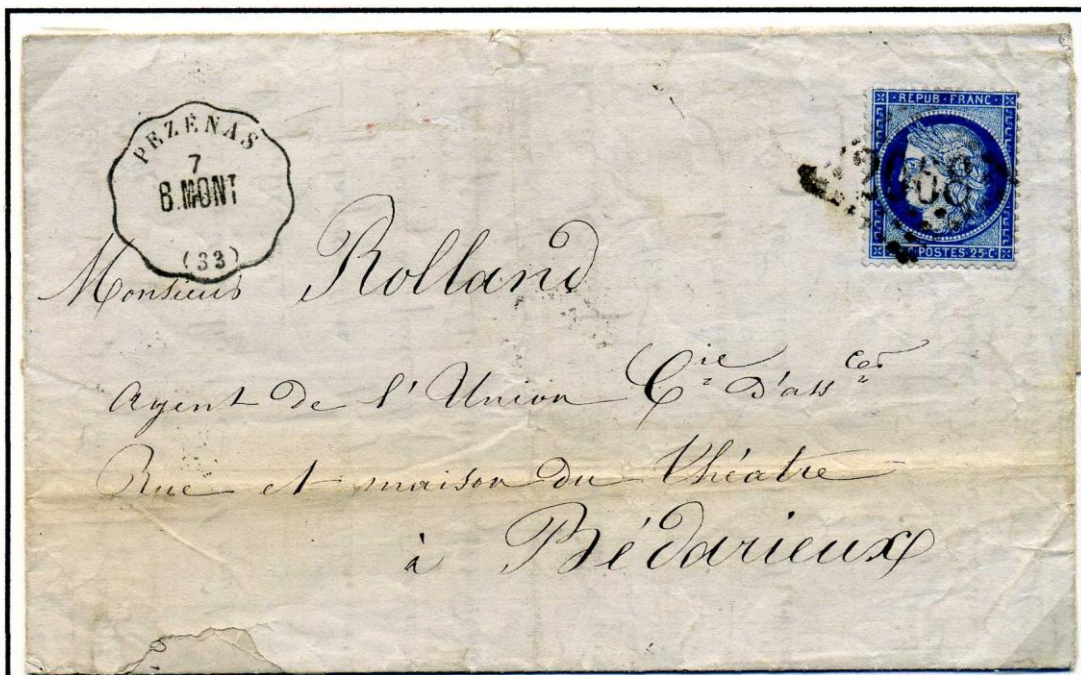 PEZÉNAS
7
B.MONT
(33)
REPUB·FRANC·
POSTES·25·C
Monsieur Rolland
Agent de l'Union Cie d'assces
Rue et maison du théatre
à Bédarieux